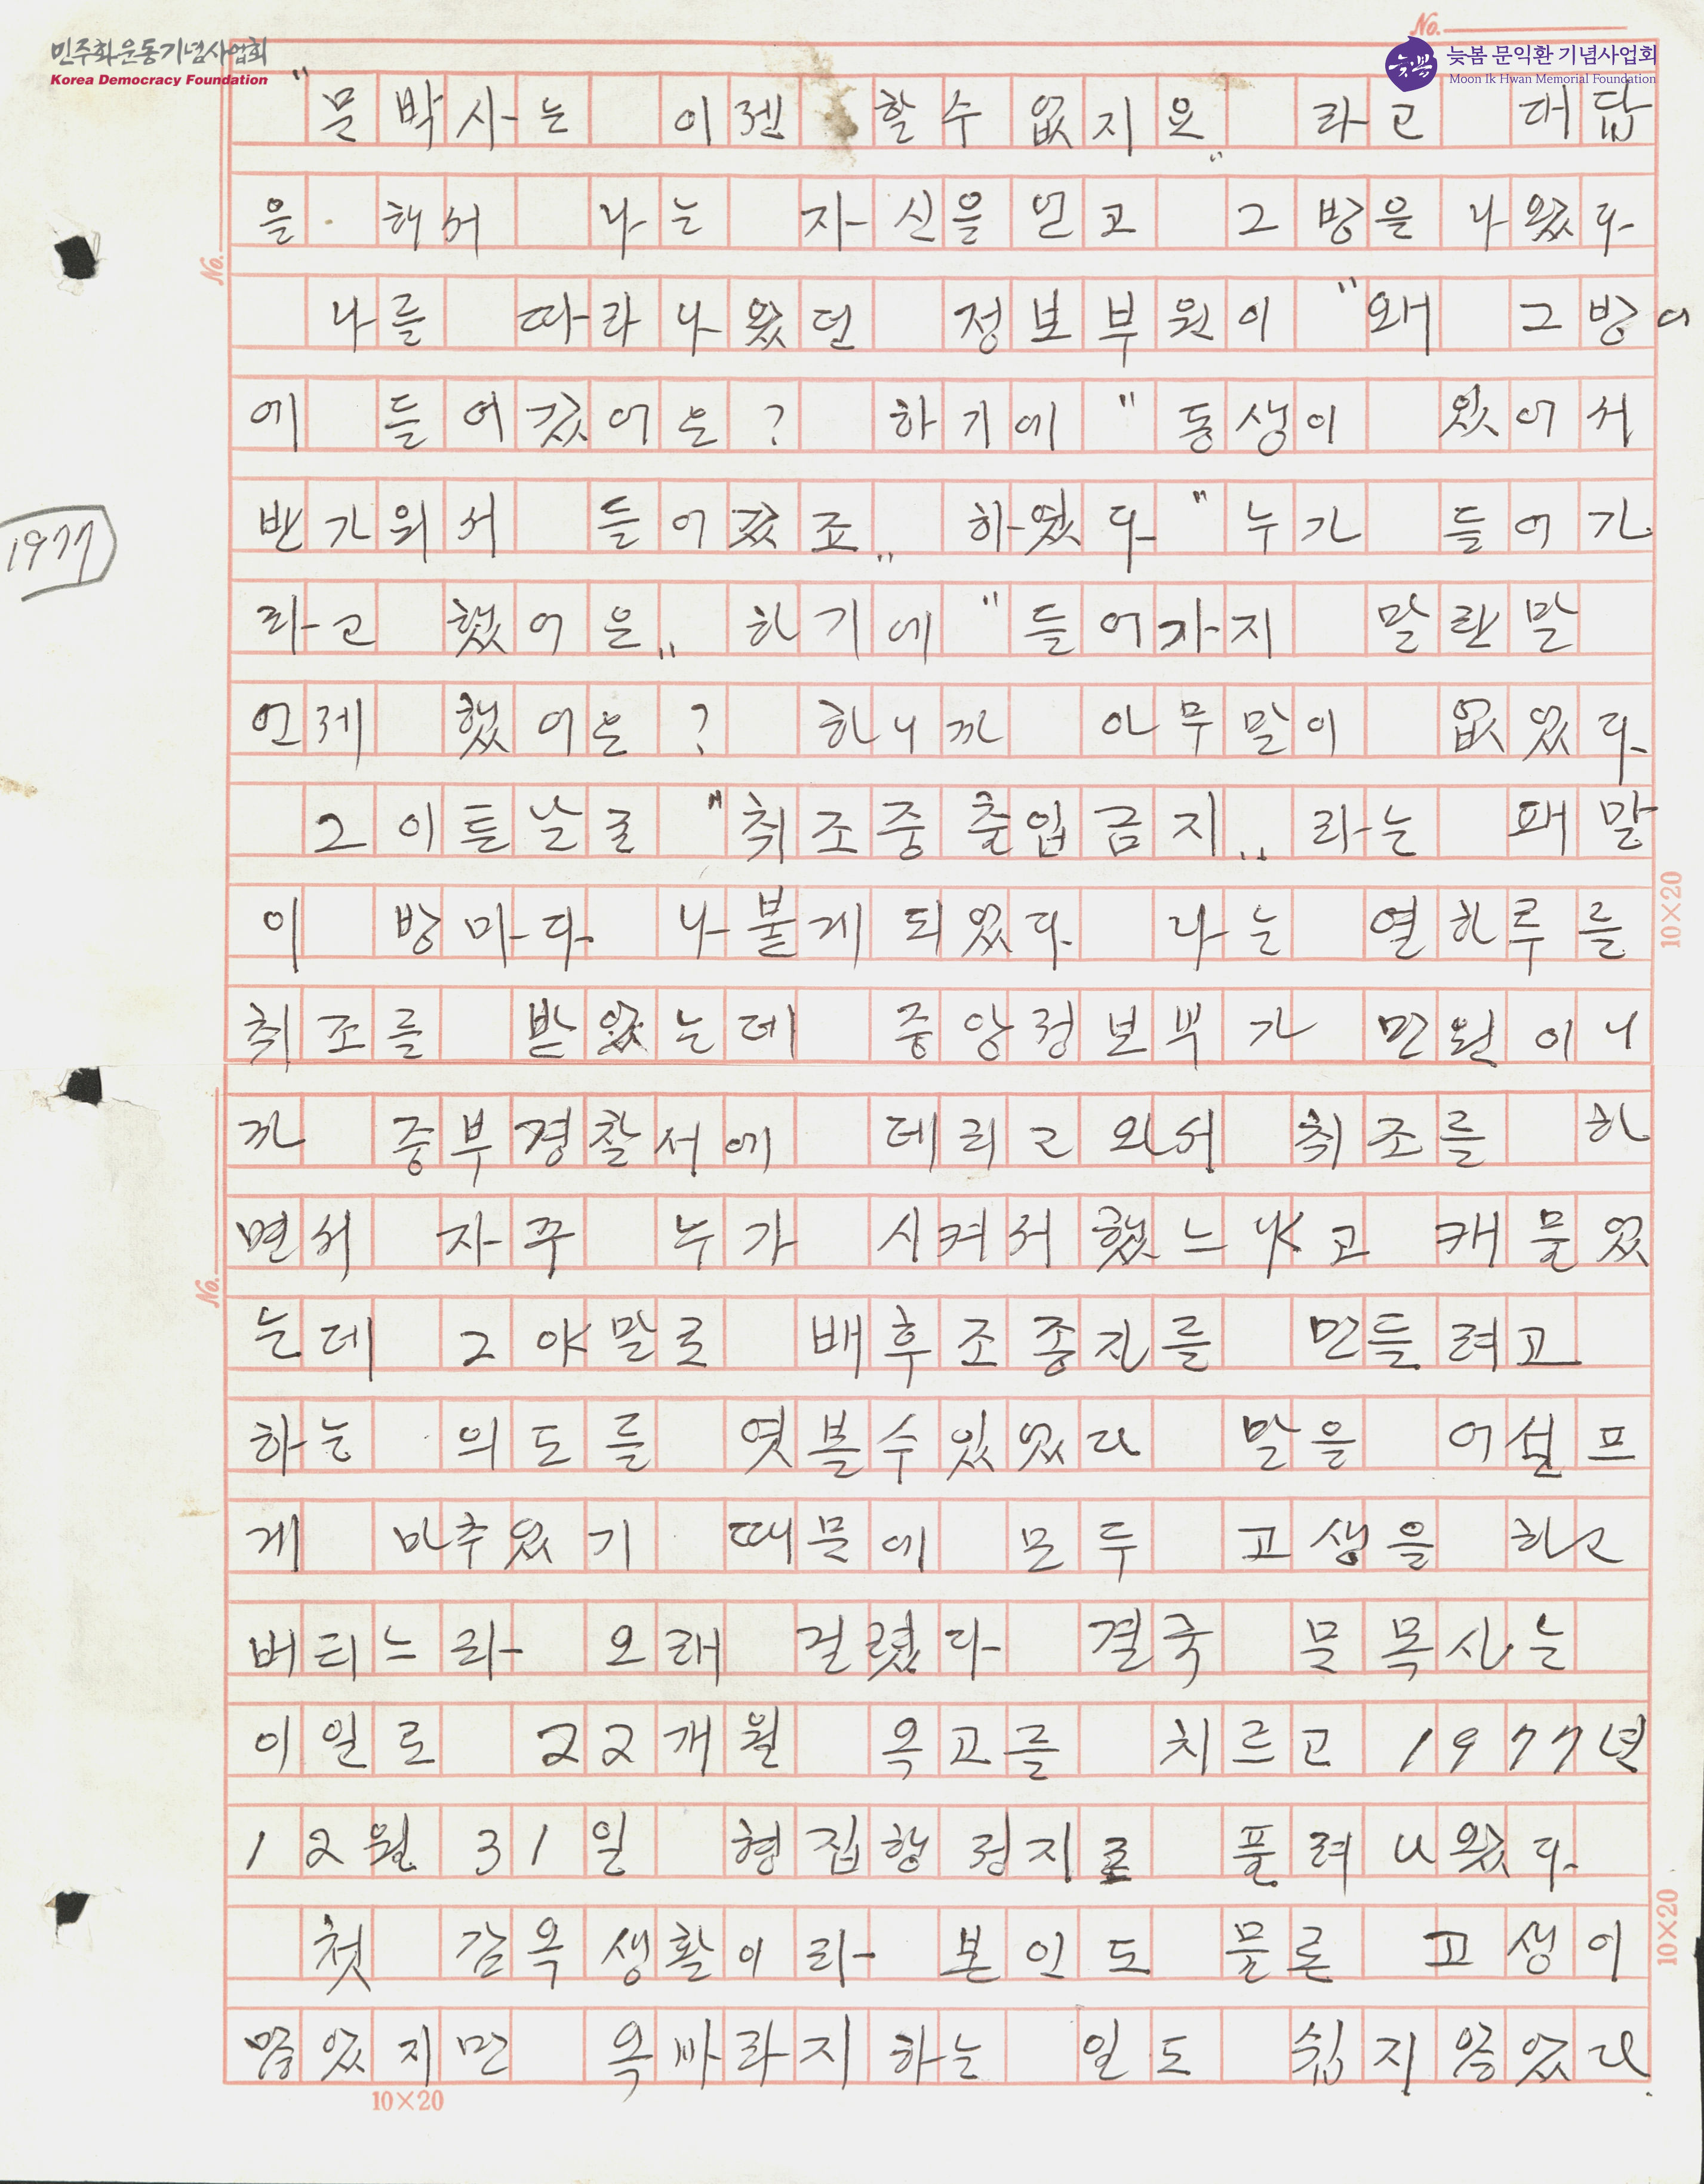 민주화운동기념사업회
Korea Democracy Foundation
No.
늦봄
늦봄 문익환 기념사업회
Moon Ik Hwan Memorial Foundation
"문박사는 이젠 할수 없지요" 라고 대답
을 해서 나는 자신을 얻고 그 방을 나왔다.
No.
나를 따라나왔던 정보부원이 "왜 그방에
에 들어갔어은? 하기에 "동생이 있어서
반가워서 들어갔죠" 하였다. "누가 들어가
1977
라고 했어은" 하기에 "들어가지 말란말
언제 했어은? 하니까 아무말이 없었다.
그이튿날로 "취조중출입금지" 라는 패말
이 방마다 나붙게되었다. 나는 열하루를
10×20
취조를 받았는데 중앙정보부가 만원이니
까 중부경찰서에 데리고와서 취조를 하
면서 자꾸 누가 시켜서했느냐고 캐물었
No.
는데 그야말로 배후조종자를 만들려고
하는 의도를 엿볼수있었다 말을 어설프
게 마추었기 때문에 모두 고생을 하고
버티느라 오래 걸렸다 결국 문목사는
이일로 22개월 옥고를 치르고 1977년
12월 31일 형집행정지로 풀려나왔다.
첫 감옥생활이라 본인도 물론 고생이
10×20
많았지만 옥바라지하는 일도 쉽지않았다.
10×20